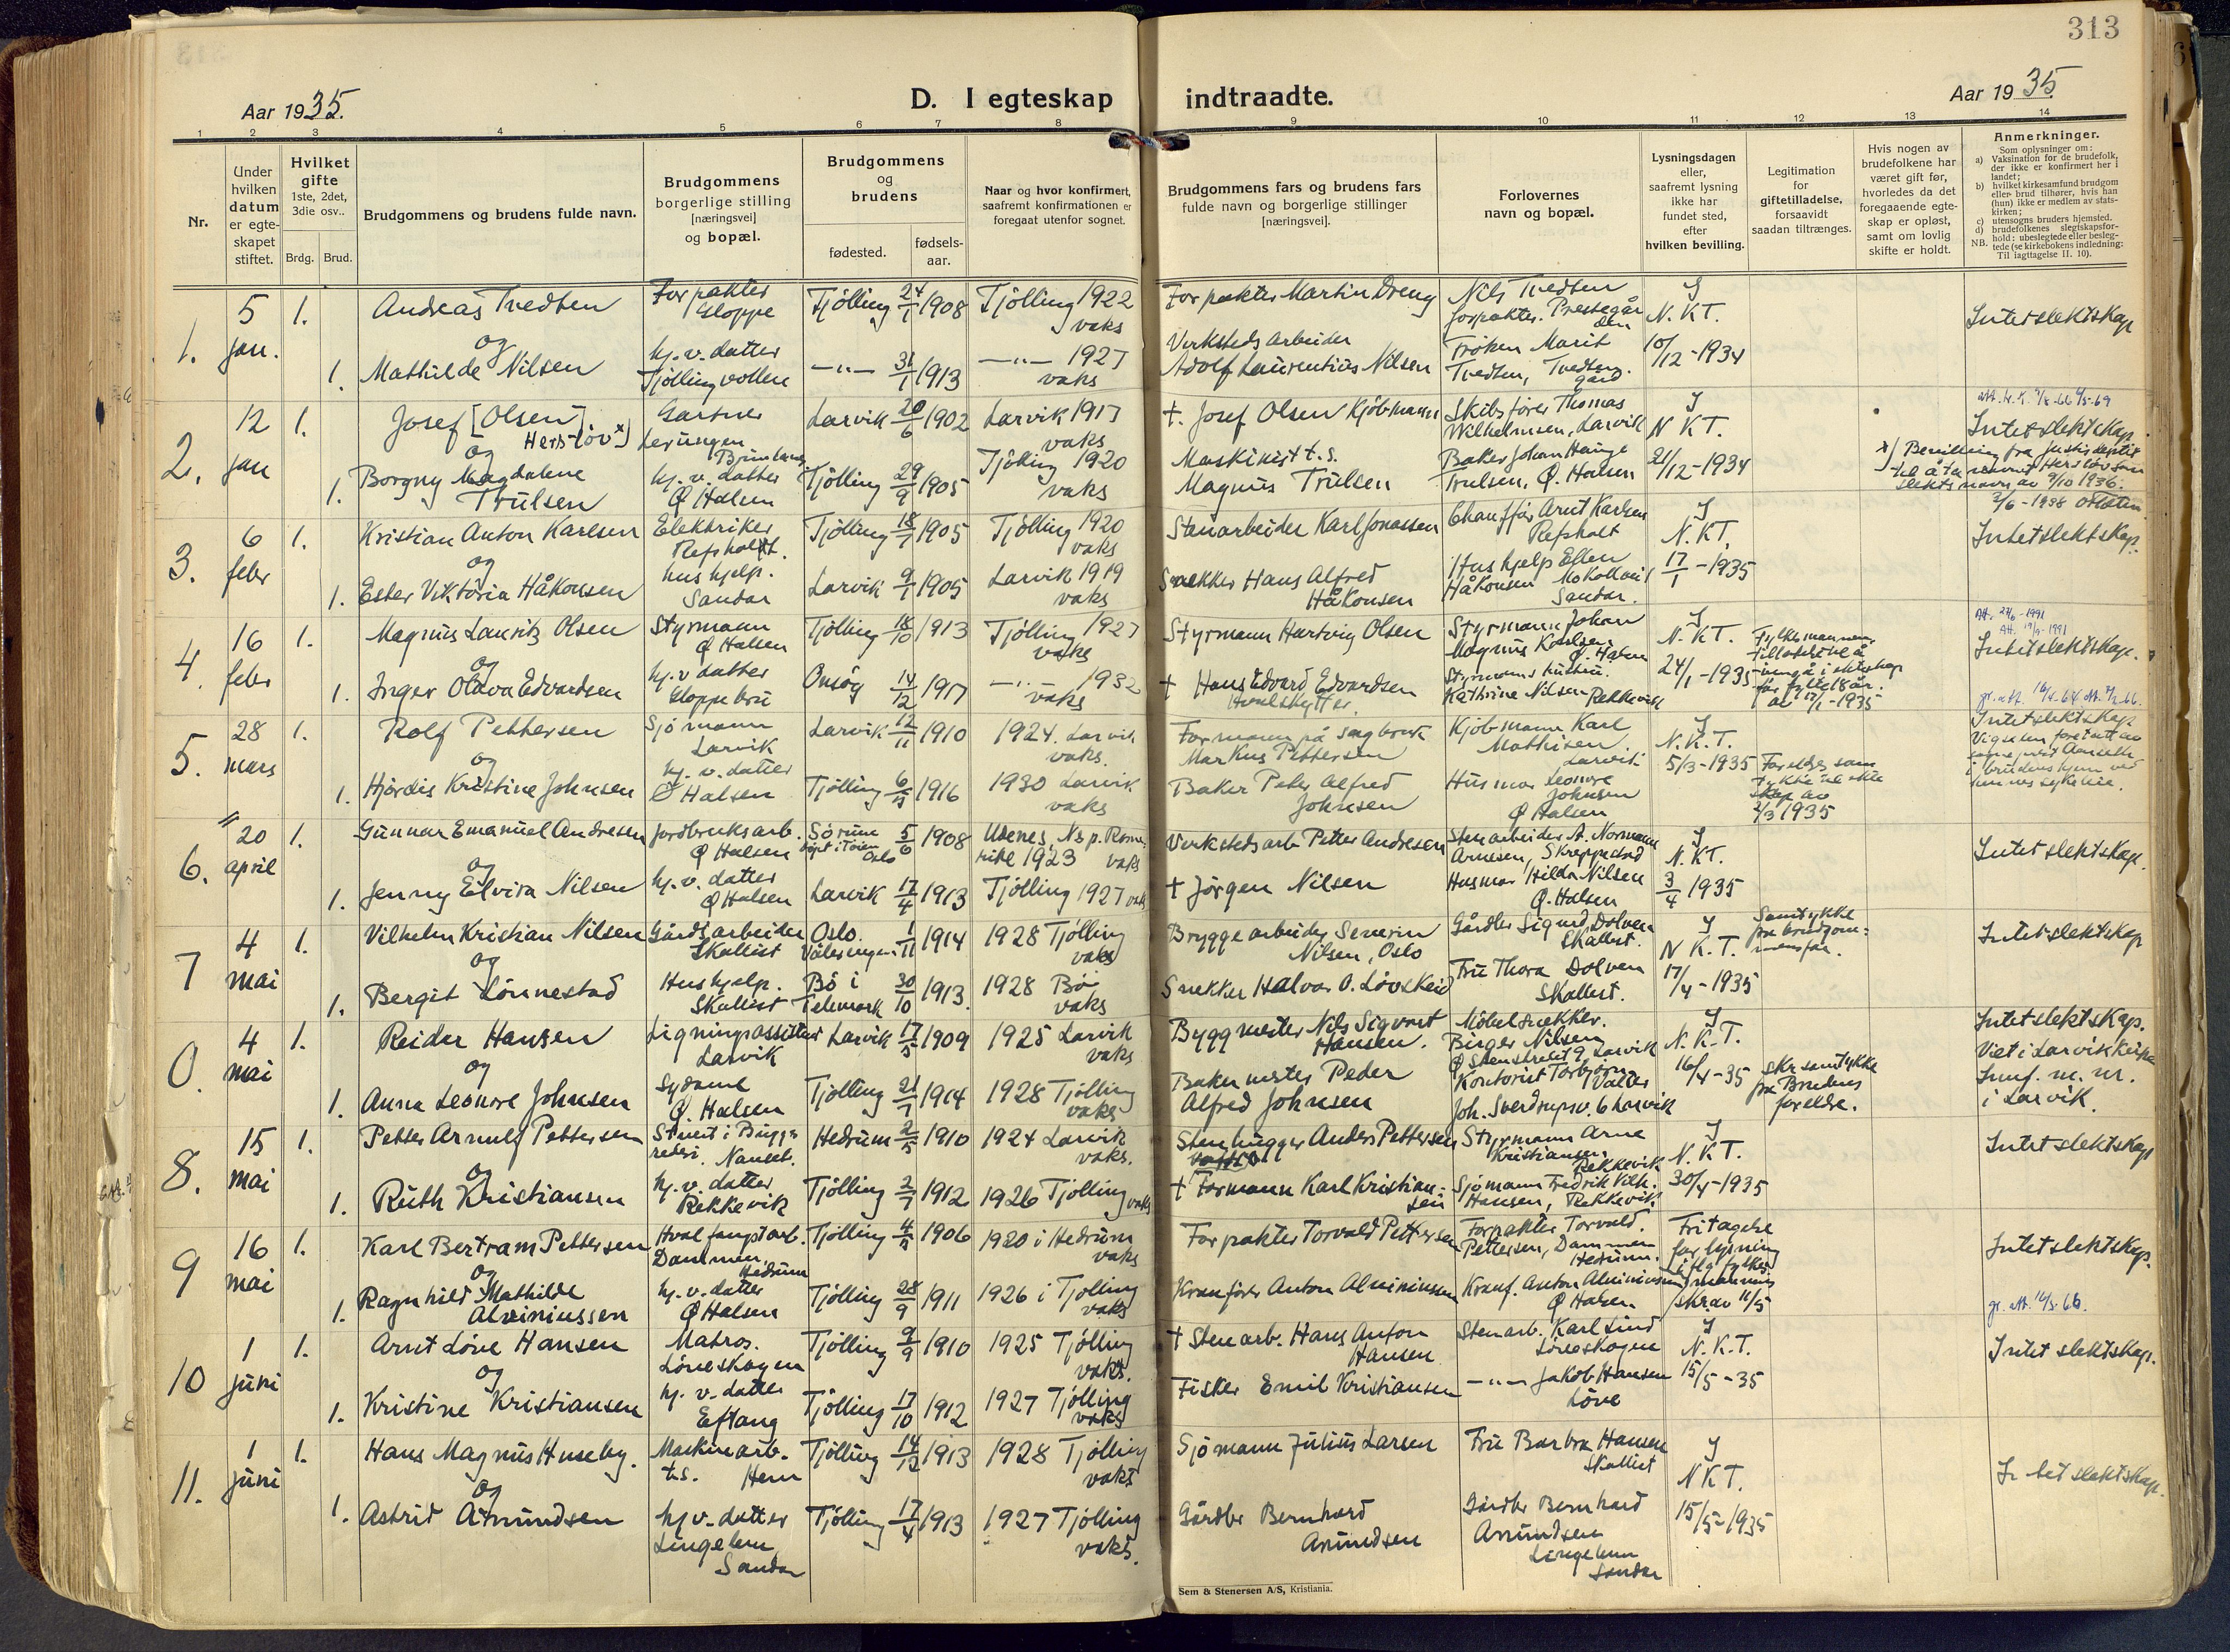 313
Aar 1935.
D. I egteskap indtraadte.
Aar 1935
1 2 3 4 5 6 7 8 9 10 11 12 13 14
Nr.
Under hvilken datum er egte-skapet stiftet.
Hvilket gifte 1ste, 2det, 3die osv..
Brdg. Brud.
Brudgommens og brudens fulde navn.
Brudgommens borgerlige stilling [næringsvei] og bopæl.
Brudgommens og brudens
fødested.
fødsels-aar.
Naar og hvor konfirmert, saafremt konfirmationen er foregaat utenfor sognet.
Brudgommens fars og brudens fars fulde navn og borgerlige stillinger [næringsvei].
Forlovernes navn og bopæl.
Lysningsdagen eller, saafremt lysning ikke har fundet sted, efter hvilken bevilling.
Legitimation for giftetilladelse, forsaavidt saadan tiltrænges.
Hvis nogen av brudefolkene har været gift før, hvorledes da det foregaaende egte-skap er opløst, samt om lovlig skifte er holdt.
Anmerkninger.
Som oplysninger om:
a) Vaksination for de brudefolk, der ikke er konfirmert her i landet;
b) hvilket kirkesamfund brudgom eller brud tilhører, hvis han (hun) ikke er medlem av stats-kirken;
c) utensogns bruders hjemsted.
d) brudefolkenes slegtskapsfor-hold: ubeslegtede eller besleg-tede (se kirkebokens indledning:
NB. Til iagttagelse II. 10).
1. 5 jan. 1. Andreas Tvedten Forpakter Gloppe Tjølling 24/1 1908 Tjølling 1922 vaks Forpakter Martin Dreng Nils Tvedten forpakter. Prestegården I N.K.T. Intet slektskap
og
1. Mathilde Nilsen hj.v.datter Tjøllingvollen —"— 31/1 1913 —"— 1927 vaks Verkstedsarbeider Adolf Laurentius Nilsen Frøken Marit Tvedten, Tvedten gård 10/12-1934
2. 12 jan 1. Josef [Olsen] Herslöv x) Gartner Larvik 20/6 1902 Larvik 1917 vaks †. Josef Olsen Kjöbmann Skibsfører Thomas Wilhelmsen, Larvik I N K T. Intet slektskap
og
1. Borgny Magdalene Trulsen hj.v.datter Ø Halsen Tjølling 29/9 1905 Tjølling 1920 vaks Maskinist t.s. Magnus Trulsen Baker Johan Hauge Trulsen, Ø. Halsen 21/12-1934
x) Bevilling fra Justisdeptet til å ta navnet Herslöv som slektsnavn av 9/10 1936.
3. 6 febr 1. Kristian Anton Karlsen Elektriker Refsholt. Tjølling 18/7 1905 Tjølling 1920 vaks Stenarbeider Karl Jonassen Chauffør Arnt Karlsen Refsholt I N.K.T. Intet slektskap.
og
1. Ester Viktoria Håkonsen hushjelp. Sandar Larvik 9/1 1905 Larvik 1919 vaks Snekker Hans Alfred Håkonsen Hushjelp Ellen Håkonsen Sandar. 17/1-1935
4. 16 febr 1. Magnus Lauritz Olsen Styrmann Ø Halsen Tjølling 18/10 1913 Tjølling 1927 vaks Styrmann Hartvig Olsen Styrmann Johan Magnus Karlsen Ø. Halsen I N.K.T. 24/1-1935 Fylkesmannens tillatelse til å inngå i ekteskap før fylte 18 år. av 17/1-1935 Intet slektskap.
og
1. Inger Olava Edvardsen hj.v datter Gloppe bru Onsøy 14/12 1917 —"— 1932 vaks † Hans Edvard Edvardsen Hvalskytter. Styrmanns hustru. Kathrine Nilsen Rekkevik
5. 28 mars 1. Rolf Pettersen Sjømann Larvik Larvik 12/11 1910 1924. Larvik vaks. Formann på sagbruk Markus Pettersen Kjøbmann Karl Mathisen. Larvik I N.K.T. 5/3-1935 Foreldres samtykke til ekteskap av 2/3 1935 Intet slektskap
og
1. Hjørdis Kristine Johnsen hj.v.datter Ø Halsen Tjølling 1916 1930 Larvik vaks Baker Peder Alfred Johnsen Husmor Leonore Johnsen Ø Halsen
6. 20 april 1. Gunnar Emanuel Andresen Jordbruksarb. Ø Halsen Sørum døpt i Tøien Oslo 5/6 1908 Udenes, Nes p. Romerike 1923 vaks Verkstedsarb Petter Andresen Stenarbeider A. Normann Arnesen, Skreppestad I N.K.T. Intet slektskap.
og
1. Jenny Elvira Nilsen hj.v.datter Ø Halsen Larvik 17/4 1913 Tjølling 1927 vaks † Jørgen Nilsen Husmor Hilda Nilsen Ø. Halsen 3/4 1935
7 4 mai 1. Vilhelm Kristian Nilsen Gårdsarbeider Skallist Oslo. Vålerengen 1/11 1914 1928 Tjølling vaks Bryggearbeider Severin Nilsen, Oslo Gårdbr Sigurd Dolven Skallist. I N K.T. 17/4-1935 Samtykke fra brudgommens far. Intet slektskap
og
1. Bergit Lönnestad Hushjelp. Skallist Bö i Telemark 30/10 1913. 1928 Bö vaks Snekker Halvor O. Løvskeid Fru Thora Dolven Skallist.
0. 4 mai 1. Reidar Hansen Ligningsassistent Larvik Larvik 17/5 1909 1925 Larvik vaks Byggmester Nils Sigvart Hansen. Møbelsnekker. Birger Nilsen Larvik I N.K.T. 16/4-35 skr samtykke fra Brudens foreldre. Intet slektskap. Viet i Larvik kirke
og
1. Anna Leonore Johnsen Sydame Ø. Halsen Tjølling 21/7 1914 1928 Tjølling vaks. Bakermester Peder Alfred Johnsen Kontorist Torbjörn Valter Joh. Sverdrupsv. 6 Larvik i Larvik.
8. 15 mai 1. Petter Arnulf Pettersen Nanset. Hedrum 2/5 1910 1924 Larvik vaks. Stenhugger Anders Pettersen Styrmann Arne Kristiansen Rekkevik I N.K.T. Intet slektskap
og
1. Ruth Kristiansen hj.v.datter Rekkevik Tjølling 2/7 1912 1926 Tjølling vaks † Formann Karl Kristiansen Sjømann Fredrik Vilh. Hansen, Rekkevik 30/4-1935
9 16 mai 1. Karl Bertram Pettersen Hvalfangstarb. Dammen, Hedrum Tjølling 1906 1920 i Hedrum vaks Forpakter Torvald Pettersen Forpakter Torvald. Pettersen, Dammen Hedrum. Fritagelse for lysning iflg fylkesmannens skr. av 11/5 Intet slektskap.
og
1. Ragnhild Mathilde Alviniussen hj.v.datter Ø Halsen Tjølling 28/9 1911 1926 i Tjølling vaks Kranfører Anton Alviniussen Kranf. Anton Alviniussen Ø Halsen
10 1 juni 1. Arnt Löve Hansen Matros. Löveskogen Tjølling 9/9 1910 1925 Tjølling vaks. † Stenarb. Hans Anton Hansen Stenarb. Karl Lind Löveskogen I N.K.T. Intet slektskap.
og
1. Kristine Kristiansen hj.v.datter Eftang Tjølling 17/10 1912 1927 Tjølling vaks Fisker Emil Kristiansen —"— Jakob Hansen Löve 15/5-35
11. 1 juni 1. Hans Magnus Huseby. Maskinarb. t.s. Hem Tjølling 14/12 1913 1928 Tjølling vaks Sjømann Julius Larsen Fru Barbra Hansen Skallist I N K T. Intet slektskap.
og
1. Astrid Amundsen hj v. datter Lingelem Sandar Tjølling 17/4 1913 1927 Tjølling vaks. Gårdbr Bernhard Amundsen Gårdbr Bernhard Amundsen Lingelem Sandar 15/5-1935
Sem & Stenersen A/S, Kristiania.